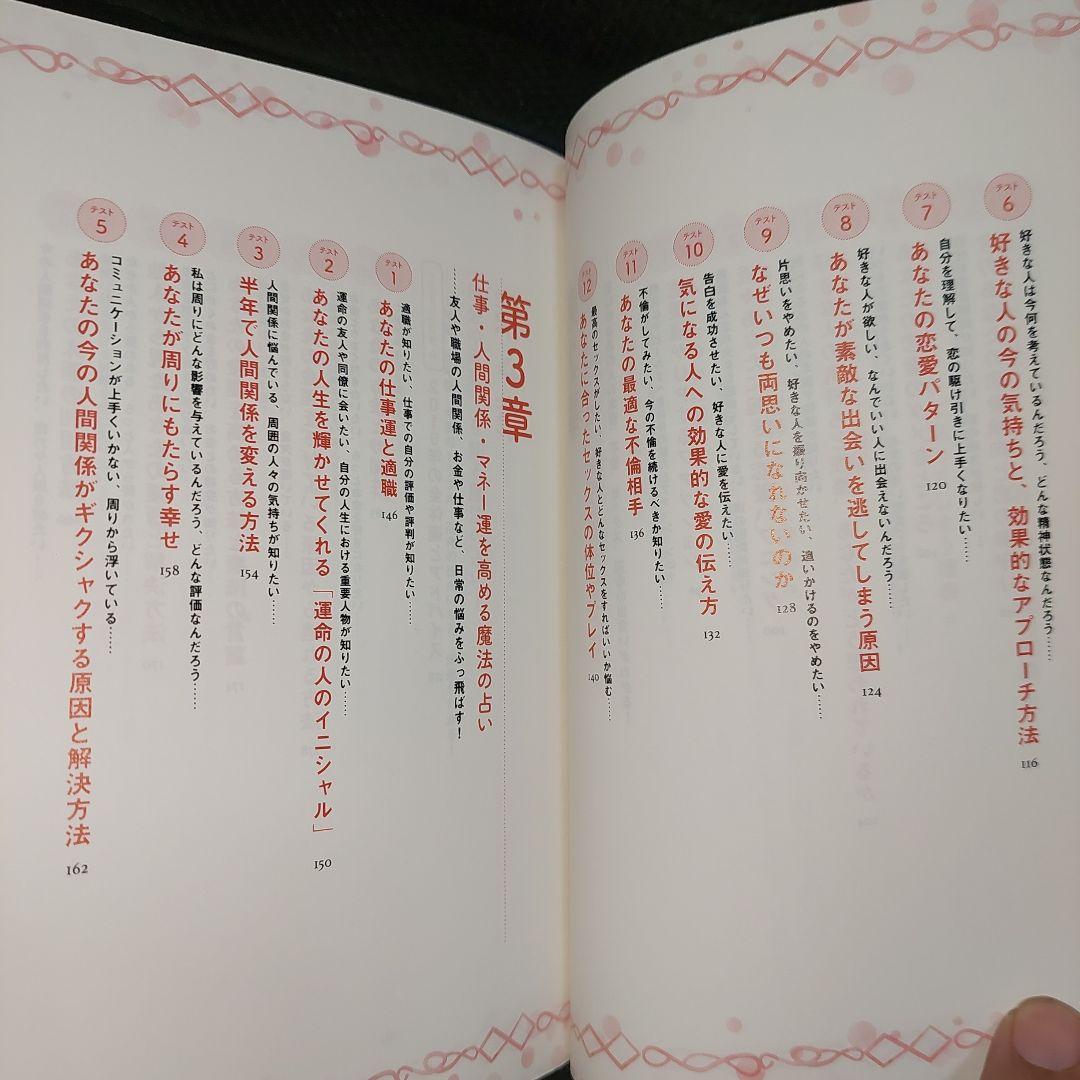 テスト
6
好きな人は今何を考えているんだろう、どんな精神状態なんだろう……
好きな人の今の気持ちと、効果的なアプローチ方法
116
テスト
7
自分を理解して、恋の駆け引きに上手くなりたい……
あなたの恋愛パターン
120
テスト
8
好きな人が欲しい、なんでいい人に出会えないんだろう……
あなたが素敵な出会いを逃してしまう原因
124
テスト
9
片思いをやめたい、好きな人を振り向かせたい、追いかけるのをやめたい……
なぜいつも両思いになれないのか
128
テスト
10
告白を成功させたい、好きな人に愛を伝えたい……
気になる人への効果的な愛の伝え方
132
テスト
11
不倫がしてみたい、今の不倫を続けるべきか知りたい……
あなたの最適な不倫相手
136
テスト
12
最高のセックスがしたい、好きな人とどんなセックスをすればいいか悩む……
あなたに合ったセックスの体位やプレイ
140
第3章
仕事・人間関係・マネー運を高める魔法の占い
……友人や職場の人間関係、お金や仕事など、日常の悩みをふっ飛ばす！
テスト
1
適職が知りたい、仕事での自分の評価や評判が知りたい……
あなたの仕事運と適職
146
テスト
2
運命の友人や同僚に会いたい、自分の人生における重要人物が知りたい……
あなたの人生を輝かせてくれる「運命の人のイニシャル」
150
テスト
3
人間関係に悩んでいる、周囲の人々の気持ちが知りたい……
半年で人間関係を変える方法
154
テスト
4
私は周りにどんな影響を与えているんだろう、どんな評価なんだろう……
あなたが周りにもたらす幸せ
158
テスト
5
コミュニケーションが上手くいかない、周りから浮いている……
あなたの今の人間関係がギクシャクする原因と解決方法
162